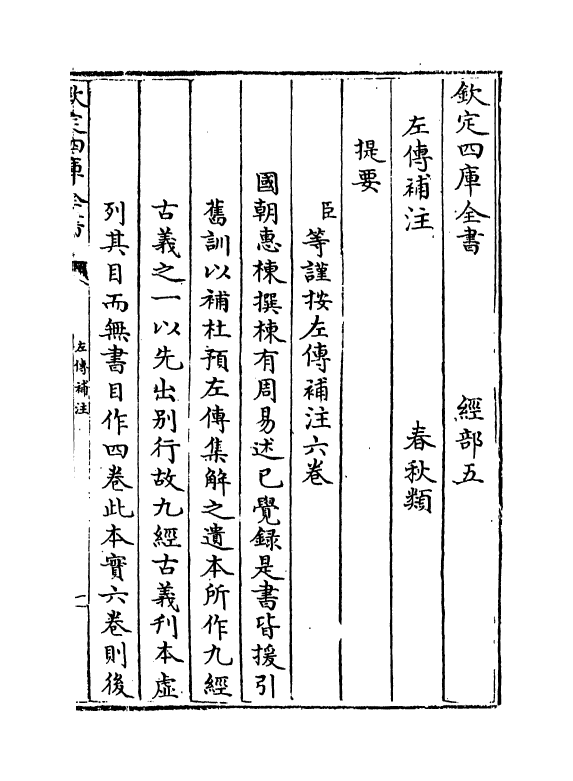 欽定四庫全書 經部五
左傳補注 春秋類
提要
臣等謹按左傳補注六卷
國朝惠棟撰棟有周易述已覺録是書皆援引
舊訓以補杜預左傳集解之遺本所作九經
古義之一以先出别行故九經古義刋本虛
列其目而無書目作四卷此本實六卷則後
欽定四庫全書
左傳補注